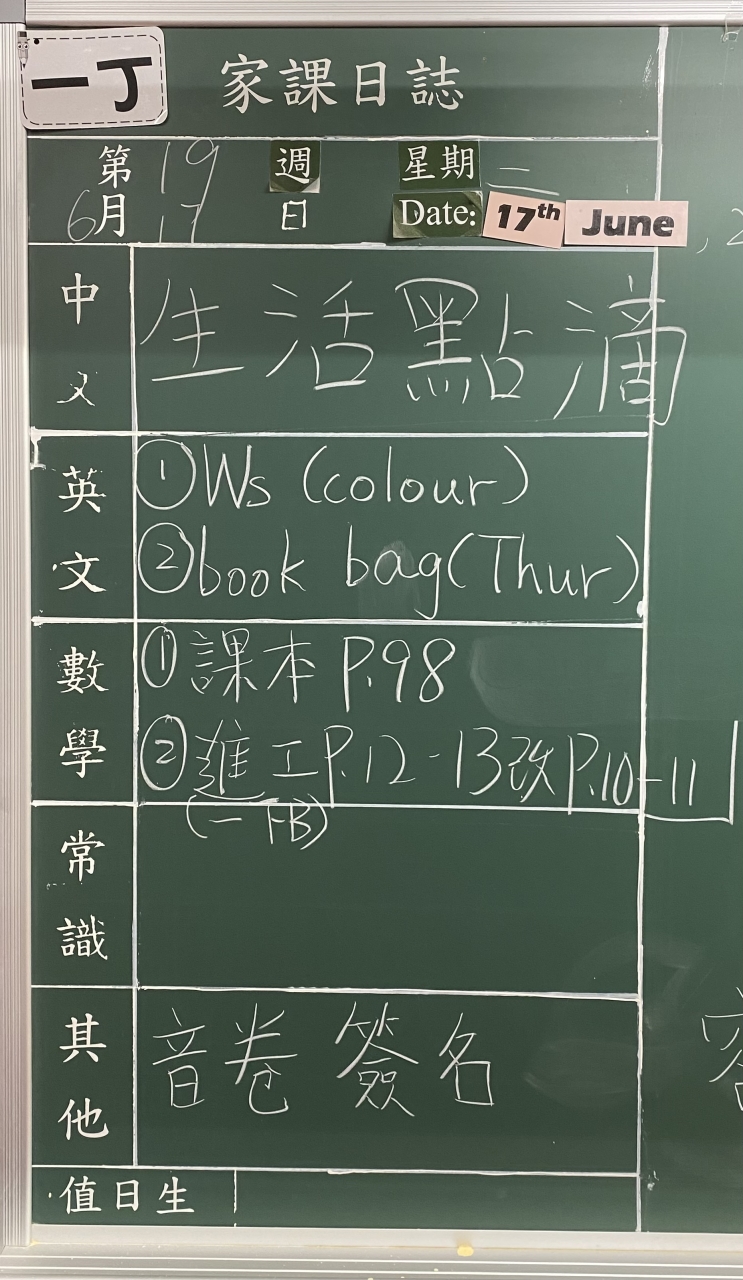 一丁
家課日誌
第19週 星期二
6月17日 Date: 17th June
中文 生活點滴
英文 ①Ws (colour)
②book bag(Thur)
數學 ①課本 P.98
②進工P.12-13改P.10-11
(一下B)
常識
其他 音卷 簽名
值日生